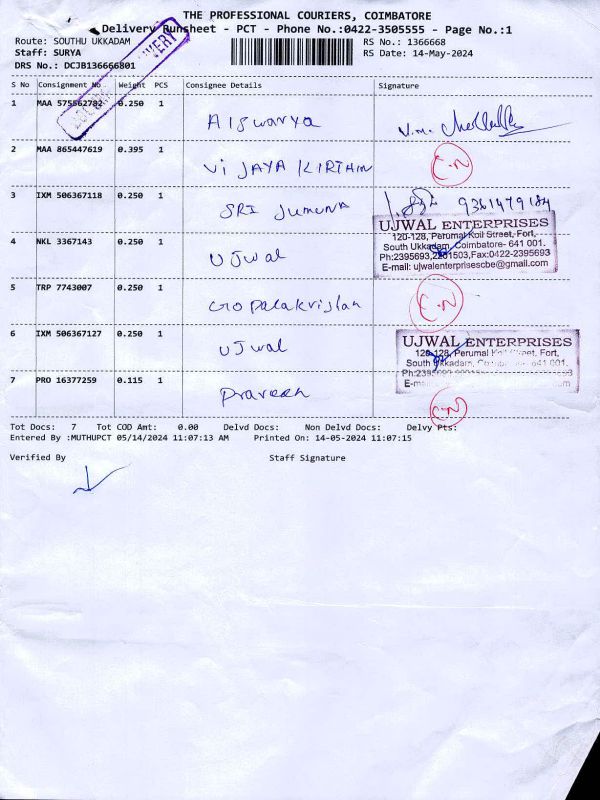 THE PROFESSIONAL COURIERS, COIMBATORE
Delivery Runsheet - PCT - Phone No.:0422-3505555 - Page No.:1
Route: SOUTHU UKKADAM RS No.: 1366668
Staff: SURYA RS Date: 14-May-2024
DRS No.: DCJB136666801
S No Consignment No Weight PCS Consignee Details Signature
1 MAA 575562782 0.250 1 Aiswarya
2 MAA 865447619 0.395 1 ViJAYA KIRTHAN C.N
3 IXM 506367118 0.250 1 SRI Jumuna 9361479184
UJWAL ENTERPRISES
120-128, Perumal Koil Street, Fort,
South Ukkadam, Coimbatore- 641 001.
Ph:2395693,2201503,Fax:0422-2395693
E-mail: ujwalenterprisescbe@gmail.com
4 NKL 3367143 0.250 1 Ujwal
5 TRP 7743007 0.250 1 Gopalakrishan C.N
6 IXM 506367127 0.250 1 UJwal
UJWAL ENTERPRISES
120-128, Perumal Koil Street, Fort,
South Ukkadam, 641 001.
7 PRO 16377259 0.115 1 Praveen C.N
Tot Docs: 7 Tot COD Amt: 0.00 Delvd Docs: Non Delvd Docs: Delvy Pts:
Entered By :MUTHUPCT 05/14/2024 11:07:13 AM Printed On: 14-05-2024 11:07:15
Verified By Staff Signature